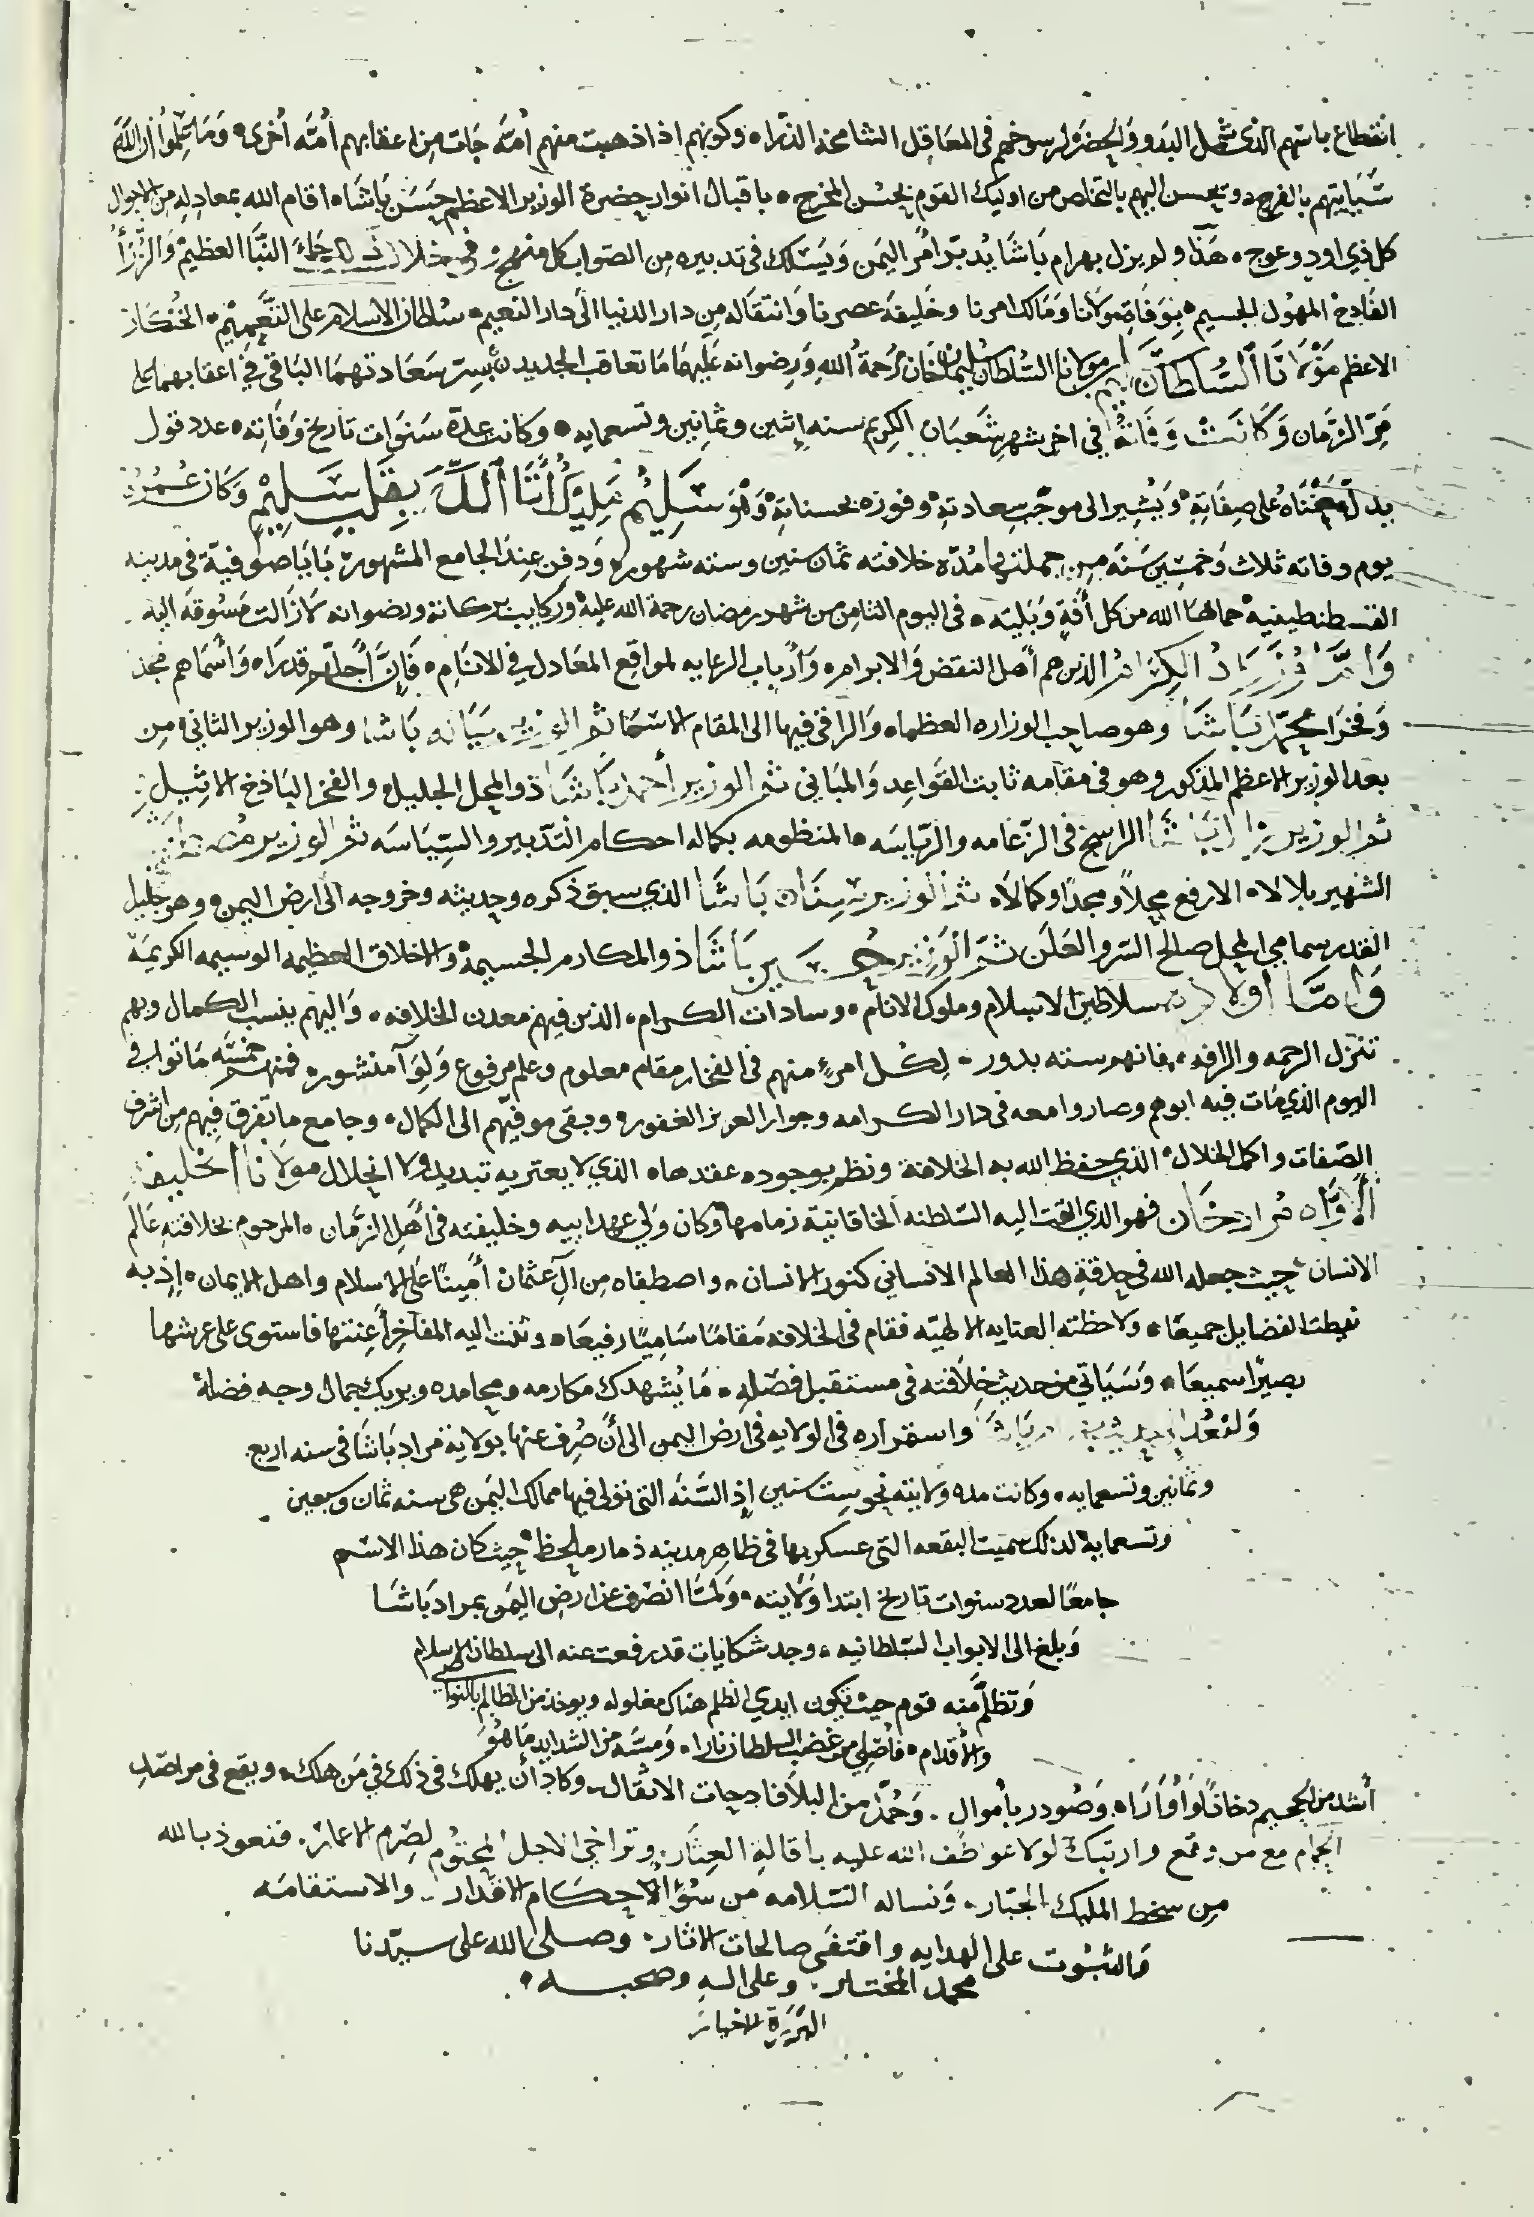 انقطاع باسهم الذي شمل البدو والحضر لرسوخهم في المعاقل الشامخه الذراه وكونهم اذا ذهبت منهم أمة جات من اعقابهم أمة أخرى وما علموا أن الله
سياتيهم بالفرج ويحسن اليهم بالتخلص من اوليك القوم بحسن المخرج باقبال انوار حضرة الوزير الاعظم حسن باشاه اقام الله بمعادله من الاحوال
كل ذي اود وعوج هذا ولم يزل بهرام باشا يدبر امر اليمن ويسلك في تدبيره من الصواب كل منهج وفي خلال ذلك جاء النبا العظيم والرزء
الفادح المهول الجسيم بوفاة مولانا ومالك امرنا وخليفة عصرنا وانتقاله من دار الدنيا الى دار النعيم سلطان الاسلام على التعميم الخنكار
الاعظم مولانا السلطان سليم بن مولانا السلطان سليمان خان رحمة الله ورضوانه عليهما ما تعاقب الجديدان بسر سعادتهما الباقي في اعقابهما على
مر الزمان وكانت وفاته في اخر شهر شعبان الكريم سنه اثنين وثمانين وتسعمايه وكانت عدة سنوات تاريخ وفاته عدد قول
يدل معناه على صفاته ويشير الى موجب سعادته وفوزه بحسناته وهو سليم مليك أتا الله بقلب سليم وكان عمره
يوم وفاته ثلاث وخمسين سنة من جملتها مدة خلافته ثمان سنين وسته شهور ودفن عند الجامع المشهور بايا صوفية في مدينه
القسطنطينية حماها الله من كل أفة وبلية في اليوم الثامن من شهر رمضان رحمة الله عليه وركايب بركاته ورضوانه لا زالت مسوقة اليه
وأما وزراؤه الكرام الذين هم أهل النقض والابرام وأرباب الرعايه لمواقع المعادل في الانام فإن أجلهم قدرا وأسماهم مجدا
وفخرا محمد باشا وهو صاحب الوزاره العظما والراقي فيها الى المقام الاسما ثم الوزير بيانه باشا وهو الوزير الثاني من
بعد الوزير الاعظم المذكور وهو في مقامه ثابت القواعد والمباني ثم الوزير أحمد باشا ذو المحل الجليل والفخر الباذخ الاثيل
ثم الوزير باشا الراسخ في الزعامه والرياسه المنظومه بكماله احكام التدبير والسياسه ثم الوزير مصطفى
الشهير بلالا الارفع محلا ومجدا وكمالا ثم الوزير سنان باشا الذي سبق ذكره وحديثه وخروجه الى ارض اليمن وهو جليل
القدر سامي المحل صالح السر والعلن ثم الوزير حسين باشا ذو المكارم الجسيمة والاخلاق العظيمه الوسيمه الكريمة
وأما أولاده سلاطين الاسلام وملوك الانام وسادات الكرام الذين فيهم معدن الخلافه واليهم ينسب الكمال وبهم
تتنزل الرحمه والرافه فانهم سته بدور لكل امرء منهم في الفخار مقام معلوم وعلم مرفوع ولوآ منشور فمنهم خمسه ماتوا في
اليوم الذي مات فيه ابوهم وصاروا معه في دار الكرامه وجوار العزيز الغفور وبقي موفيهم الى الكمال وجامع ما تفرق فيهم من اشرف
الصفات واكمل الخلال الذي حفظ الله به الخلافة ونظم بوجوده عقدها الذي لا يعتريه تبديل ولا انحلال مولانا الخليفة
الأواه مراد خان فهو الذي القت اليه السلطنه الخاقانية زمامها وكان ولي عهد ابيه وخليفته في أهل الزمان المرحوم بخلافته عالم
الانسان حيث جعله الله في حدقة هذا العالم الانساني كنور الانسان واصطفاه من آل عثمان أمينا على الاسلام واهل الايمان إذ به
نيطت الفضايل جميعا ولاحظته العنايه الالهيه فقام في الخلافه مقاما ساميا رفيعا وثنت اليه المفاخر أعنتها فاستوى على عرشها
بصيرا سميعا وسياتي من حديث خلافته في مستقبل فصله ما يشهدك مكارمه ومحامده ويريك جمال وجه فضله
ولنعد الى حديث بهرام باشا واستقراره في الولايه في ارض اليمن الى أن صرف عنها بولاية مراد باشا في سنه اربع
وثمانين وتسعمايه وكانت مده ولايته نحو ست سنين إذ السنه التي تولى فيها ممالك اليمن هي سنه ثمان وسبعين
وتسعماية لذلك سميت البقعه التي عسكر بها في ظاهر مدينه ذمار ملحظ حيث كان هذا الاسم
جامعا لعدد سنوات تاريخ ابتدا ولايته ولما انصرف عن ارض اليمن بمراد باشا
وبلغ الى الابواب السلطانيه وجد شكايات قد رفعت عنه الى سلطان الاسلام
وتظلم منه قوم حيث تكون ايدي الظلم هناك مغلوله ويوخذ من الظالم بالنواصي
والاقدام فأصلي من غضب السلطان نارا ومسه من الشدايد ما هو
أشد من الجحيم دخانا وأوارا وصودر بأموال وحمل من البلا فادحات الاثقال وكاد أن يهلك في ذلك في من هلك ويقع في مراصد
الحمام مع من وقع وارتبك لولا عواطف الله عليه بأقالة العثار وتراخي الاجل المحتوم لصرم الاعمار فنعوذ بالله
من سخط المليك الجبار ونساله السلامه من سؤ الاحكام الاقدار والاستقامه
والثبوت على الهدايه واقتفى صالحات الاثار وصلى الله على سيدنا
محمد المختار وعلى اله وصحبه
البررة الاخيار